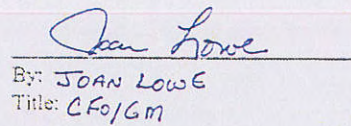 Joan Lowe
By: JOAN LOWE
Title: CFO/GM